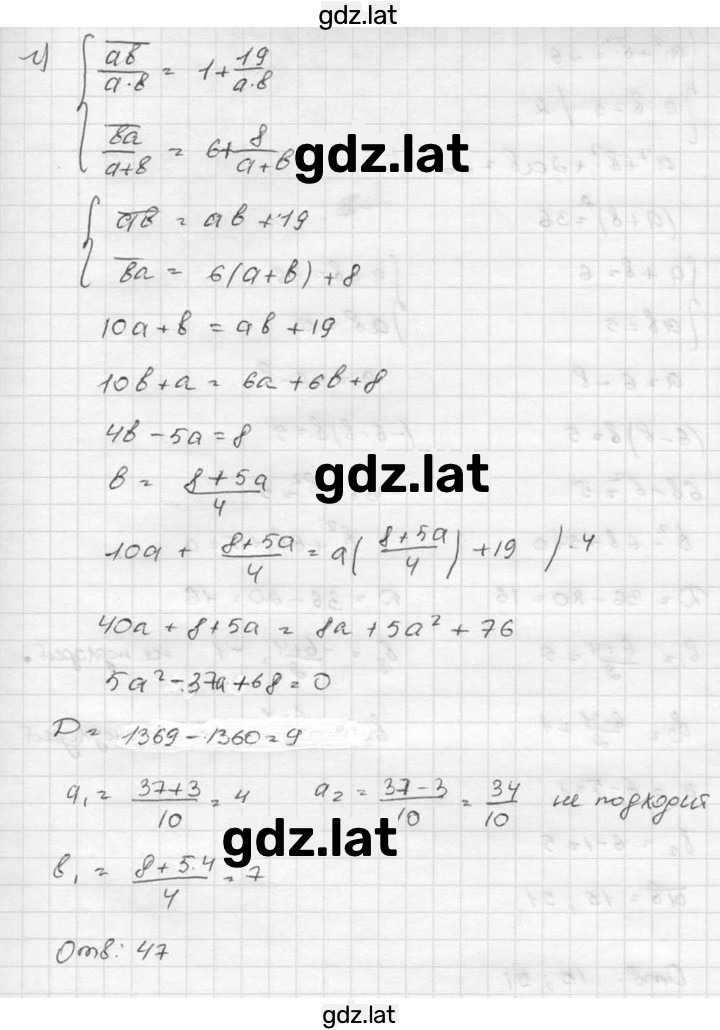 gdz.lat
г) { \overline{ab}/(a·b) = 1+19/(a·b)
{ \overline{ba}/(a+b) = 6+8/(a+b)
gdz.lat
{ \overline{ab} = ab+19
{ \overline{ba} = 6(a+b)+8
10a+b = ab+19
10b+a = 6a+6b+8
4b-5a=8
b = (8+5a)/4
gdz.lat
10a + (8+5a)/4 = a((8+5a)/4)+19 )·4
40a+8+5a = 8a+5a²+76
5a²-37a+68=0
D = 1369-1360=9
a₁ = (37+3)/10 = 4 a₂ = (37-3)/10 = 34/10 не подходит
gdz.lat
b₁ = (8+5·4)/4 = 7
Отв: 47
gdz.lat